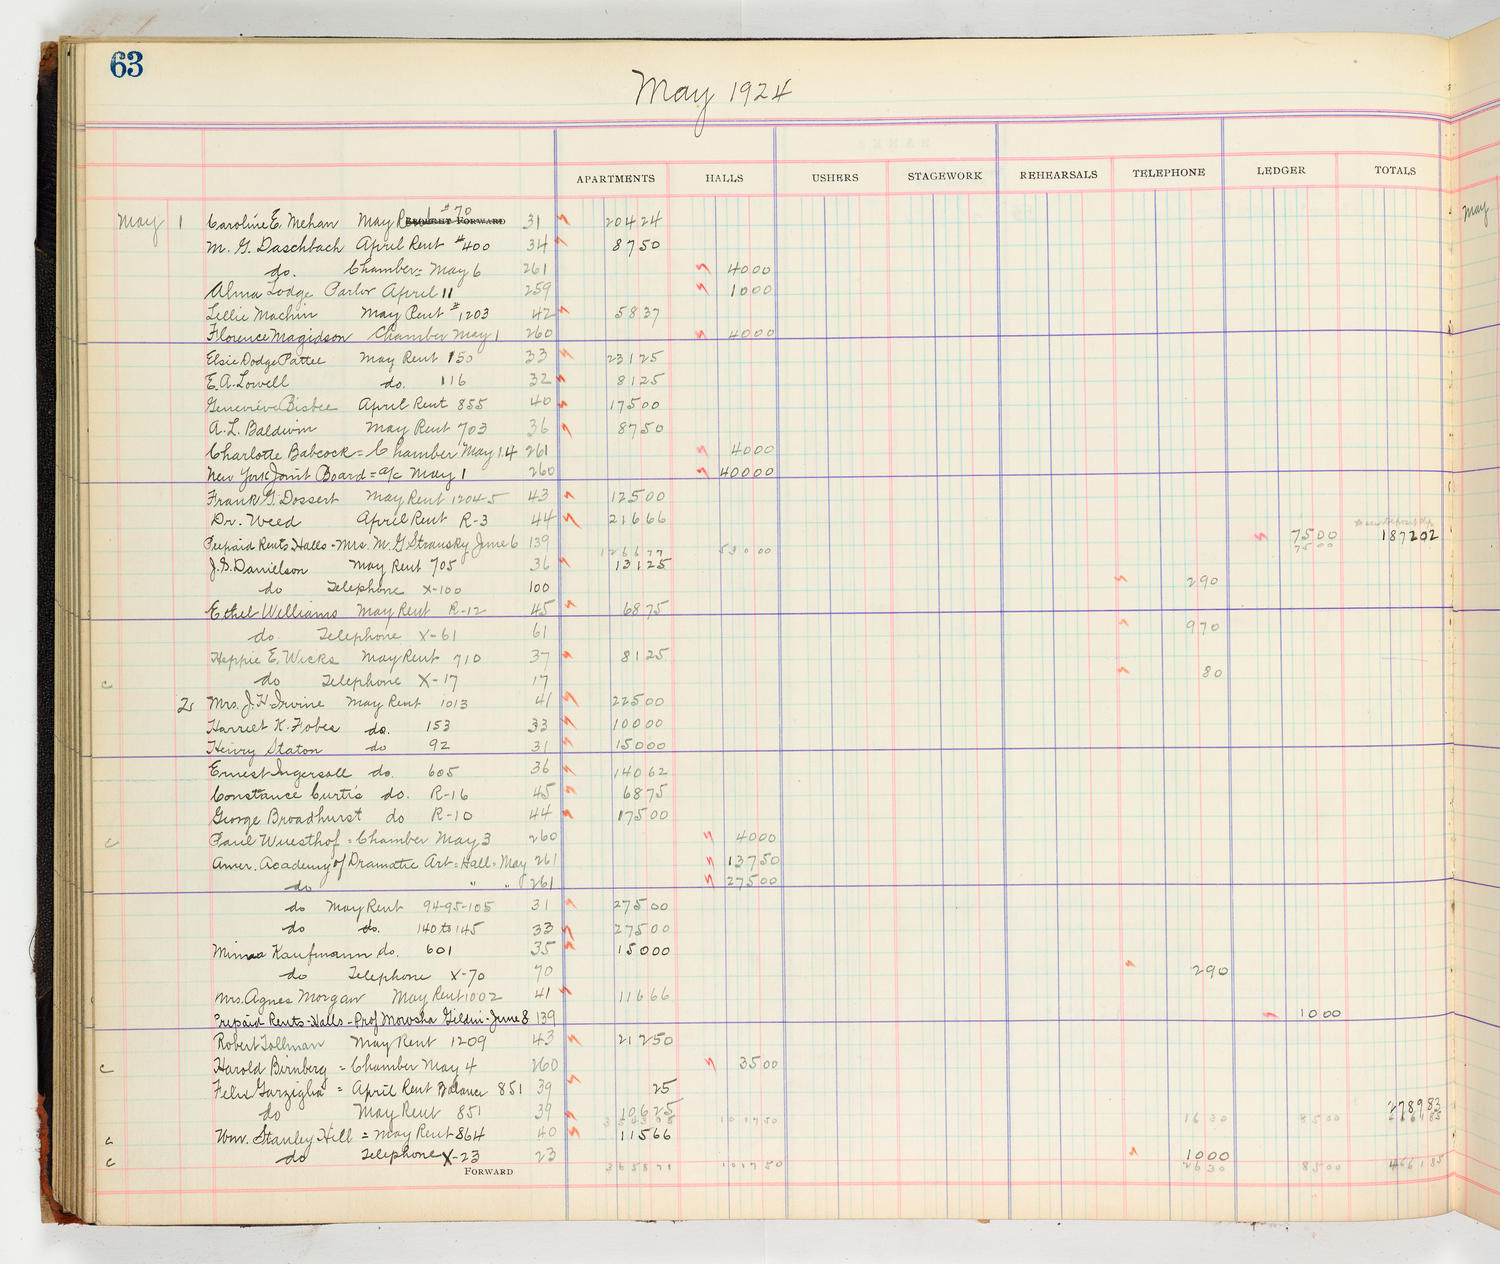 63
May 1924
APARTMENTS HALLS USHERS STAGEWORK REHEARSALS TELEPHONE LEDGER TOTALS
May 1 Caroline E. Mehan May Rent #70 BROUGHT FORWARD 31 204 24
M. G. Daschbach April Rent #400 34 87 50
do. Chamber = May 6 261 40 00
Alma Lodge Parlor April 11 259 10 00
Lillie Machin May Rent #1203 42 58 37
Florence Magidson Chamber May 1 260 40 00
Elsie Dodge Pattee May Rent 150 33 231 25
E. A. Lowell do. 116 32 81 25
Genevieve Bisbee April Rent 855 40 175 00
A. L. Baldwin May Rent 703 36 87 50
Charlotte Babcock = Chamber May 14 261 40 00
New York Joint Board = a/c May 1 260 400 00
Frank G. Dossert May Rent 1204-5 43 125 00
Dr. Weed April Rent R-3 44 216 66
Prepaid Rents Halls - Mrs. M. G. Stransky June 6 139 75 00 1872 02
1266 77 530 00 75 00
J. S. Danielson May Rent 705 36 131 25
do Telephone X-100 100 2 90
Ethel Williams May Rent R-12 45 68 75
do. Telephone X-61 61 9 70
Heppie E. Wicks May Rent 710 37 81 25
c do Telephone X-17 17 80
2 Mrs. J. H. Irvine May Rent 1013 41 225 00
Harriet K. Fobes do. 153 33 100 00
Henry Staton do 92 31 150 00
Ernest Ingersoll do. 605 36 140 62
Constance Curtis do. R-16 45 68 75
George Broadhurst do R-10 44 175 00
c Paul Wuesthof = Chamber May 3 260 40 00
Amer. Academy of Dramatic Art = Hall = May 261 137 50
do " " 261 275 00
do May Rent 94-95-105 31 275 00
do do. 140 to 145 33 275 00
Minna Kaufmann do. 601 35 150 00
do Telephone X-70 70 2 90
Mrs. Agnes Morgan May Rent 1002 41 116 66
Prepaid Rents - Halls - Prof Mowsha Gildin - June 8 139 10 00
Robert Tollman May Rent 1209 43 212 50
c Harold Birnberg = Chamber May 4 260 35 00
Felix Garziglia = April Rent Balance 851 39 25
do May Rent 851 39 106 25 2789 83
1017 50 16 30 85 00
c Wm. Stanley Hill = May Rent 864 40 115 66
c do Telephone X-23 23 10 00
FORWARD 3658 71 1017 50 26 30 85 00 4661 85
May